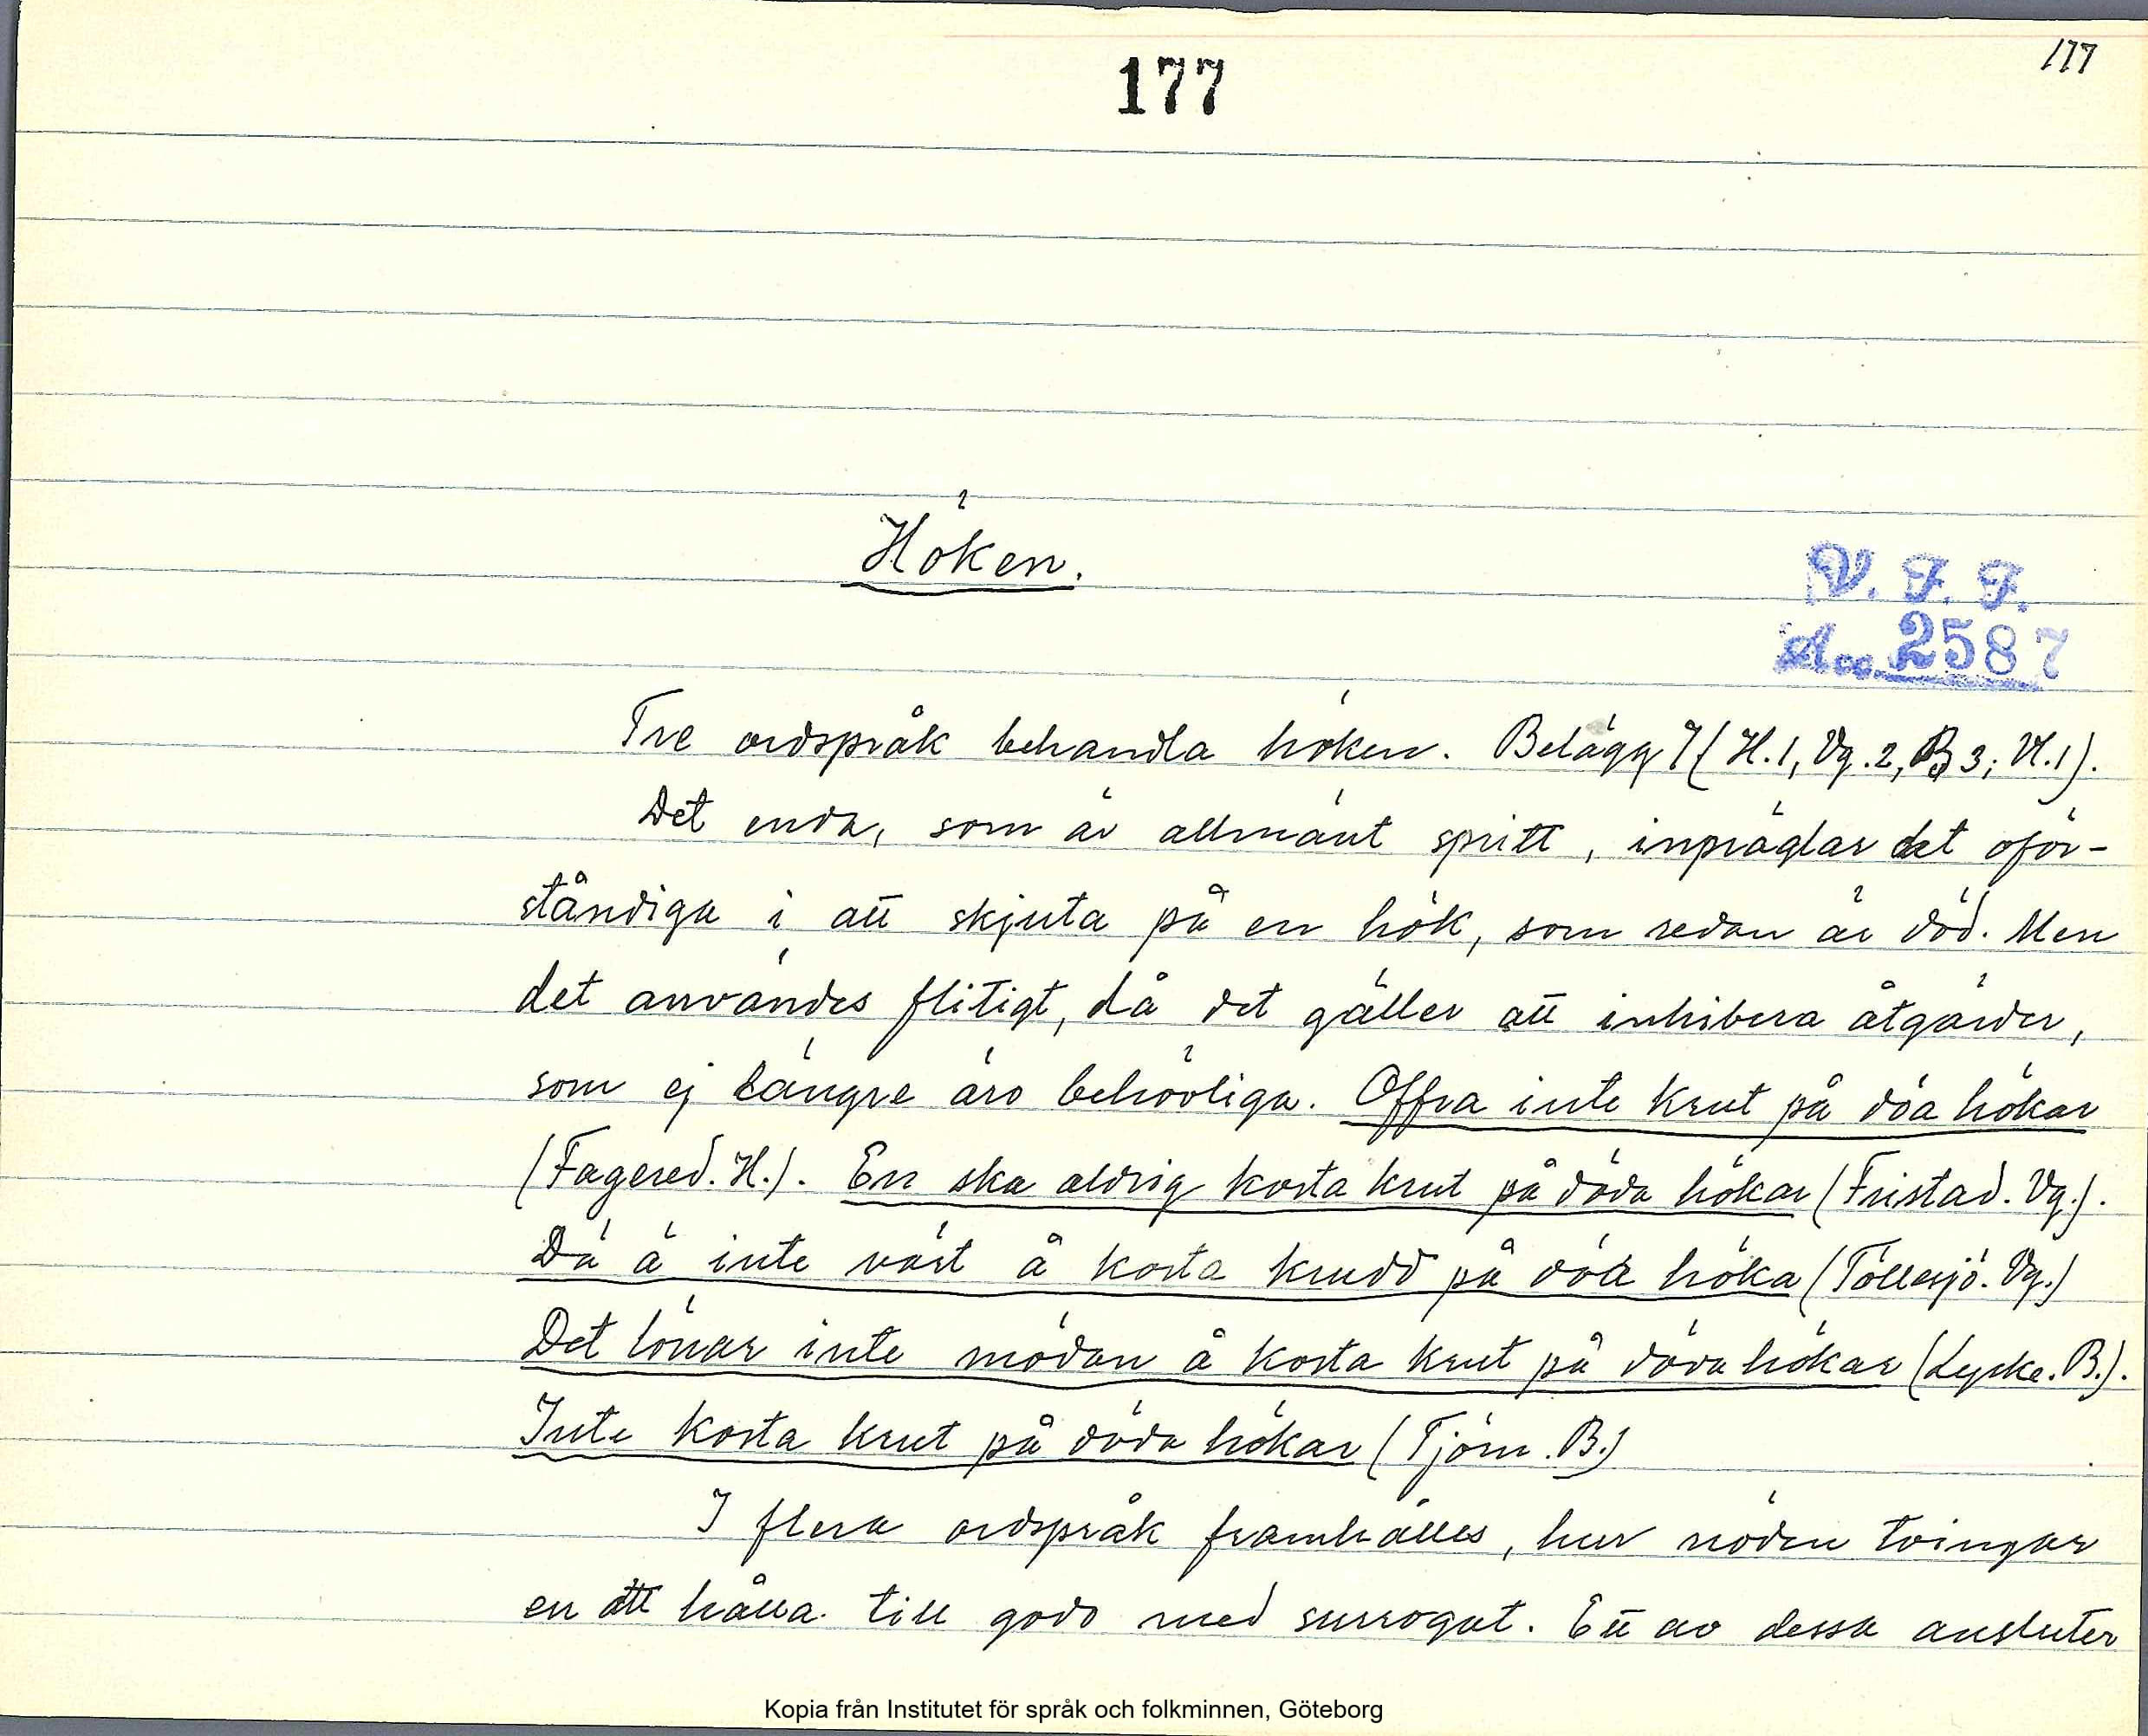 177
177
Höken.
V. F. F.
Acc. 2587
Tre ordspråk behandla höken. Belägg 7 (H. 1, Vg. 2, B 3; Vl. 1).
Det enda, som är allmänt spritt, inpräglar det oför-
ståndiga i att skjuta på en hök, som redan är död. Men
det användes flitigt, då det gäller att inhibera åtgärder,
som ej längre äro behövliga. Offra inte krut på döa hökar
(Fagered. H.). En ska aldrig kosta krut på döda hökar (Fristad. Vg.).
Dä ä inte värt å kosta krudd på döa höka (Töllesjö. Vg.)
Det lönar inte mödan å kosta krut på döda hökar (Lycke. B.).
Inte kosta krut på döda hökar (Tjörn. B.)
I flera ordspråk framhålles, hur nöden tvingar
en att hålla till godo med surrogat. Ett av dessa ansluter
Kopia från Institutet för språk och folkminnen, Göteborg